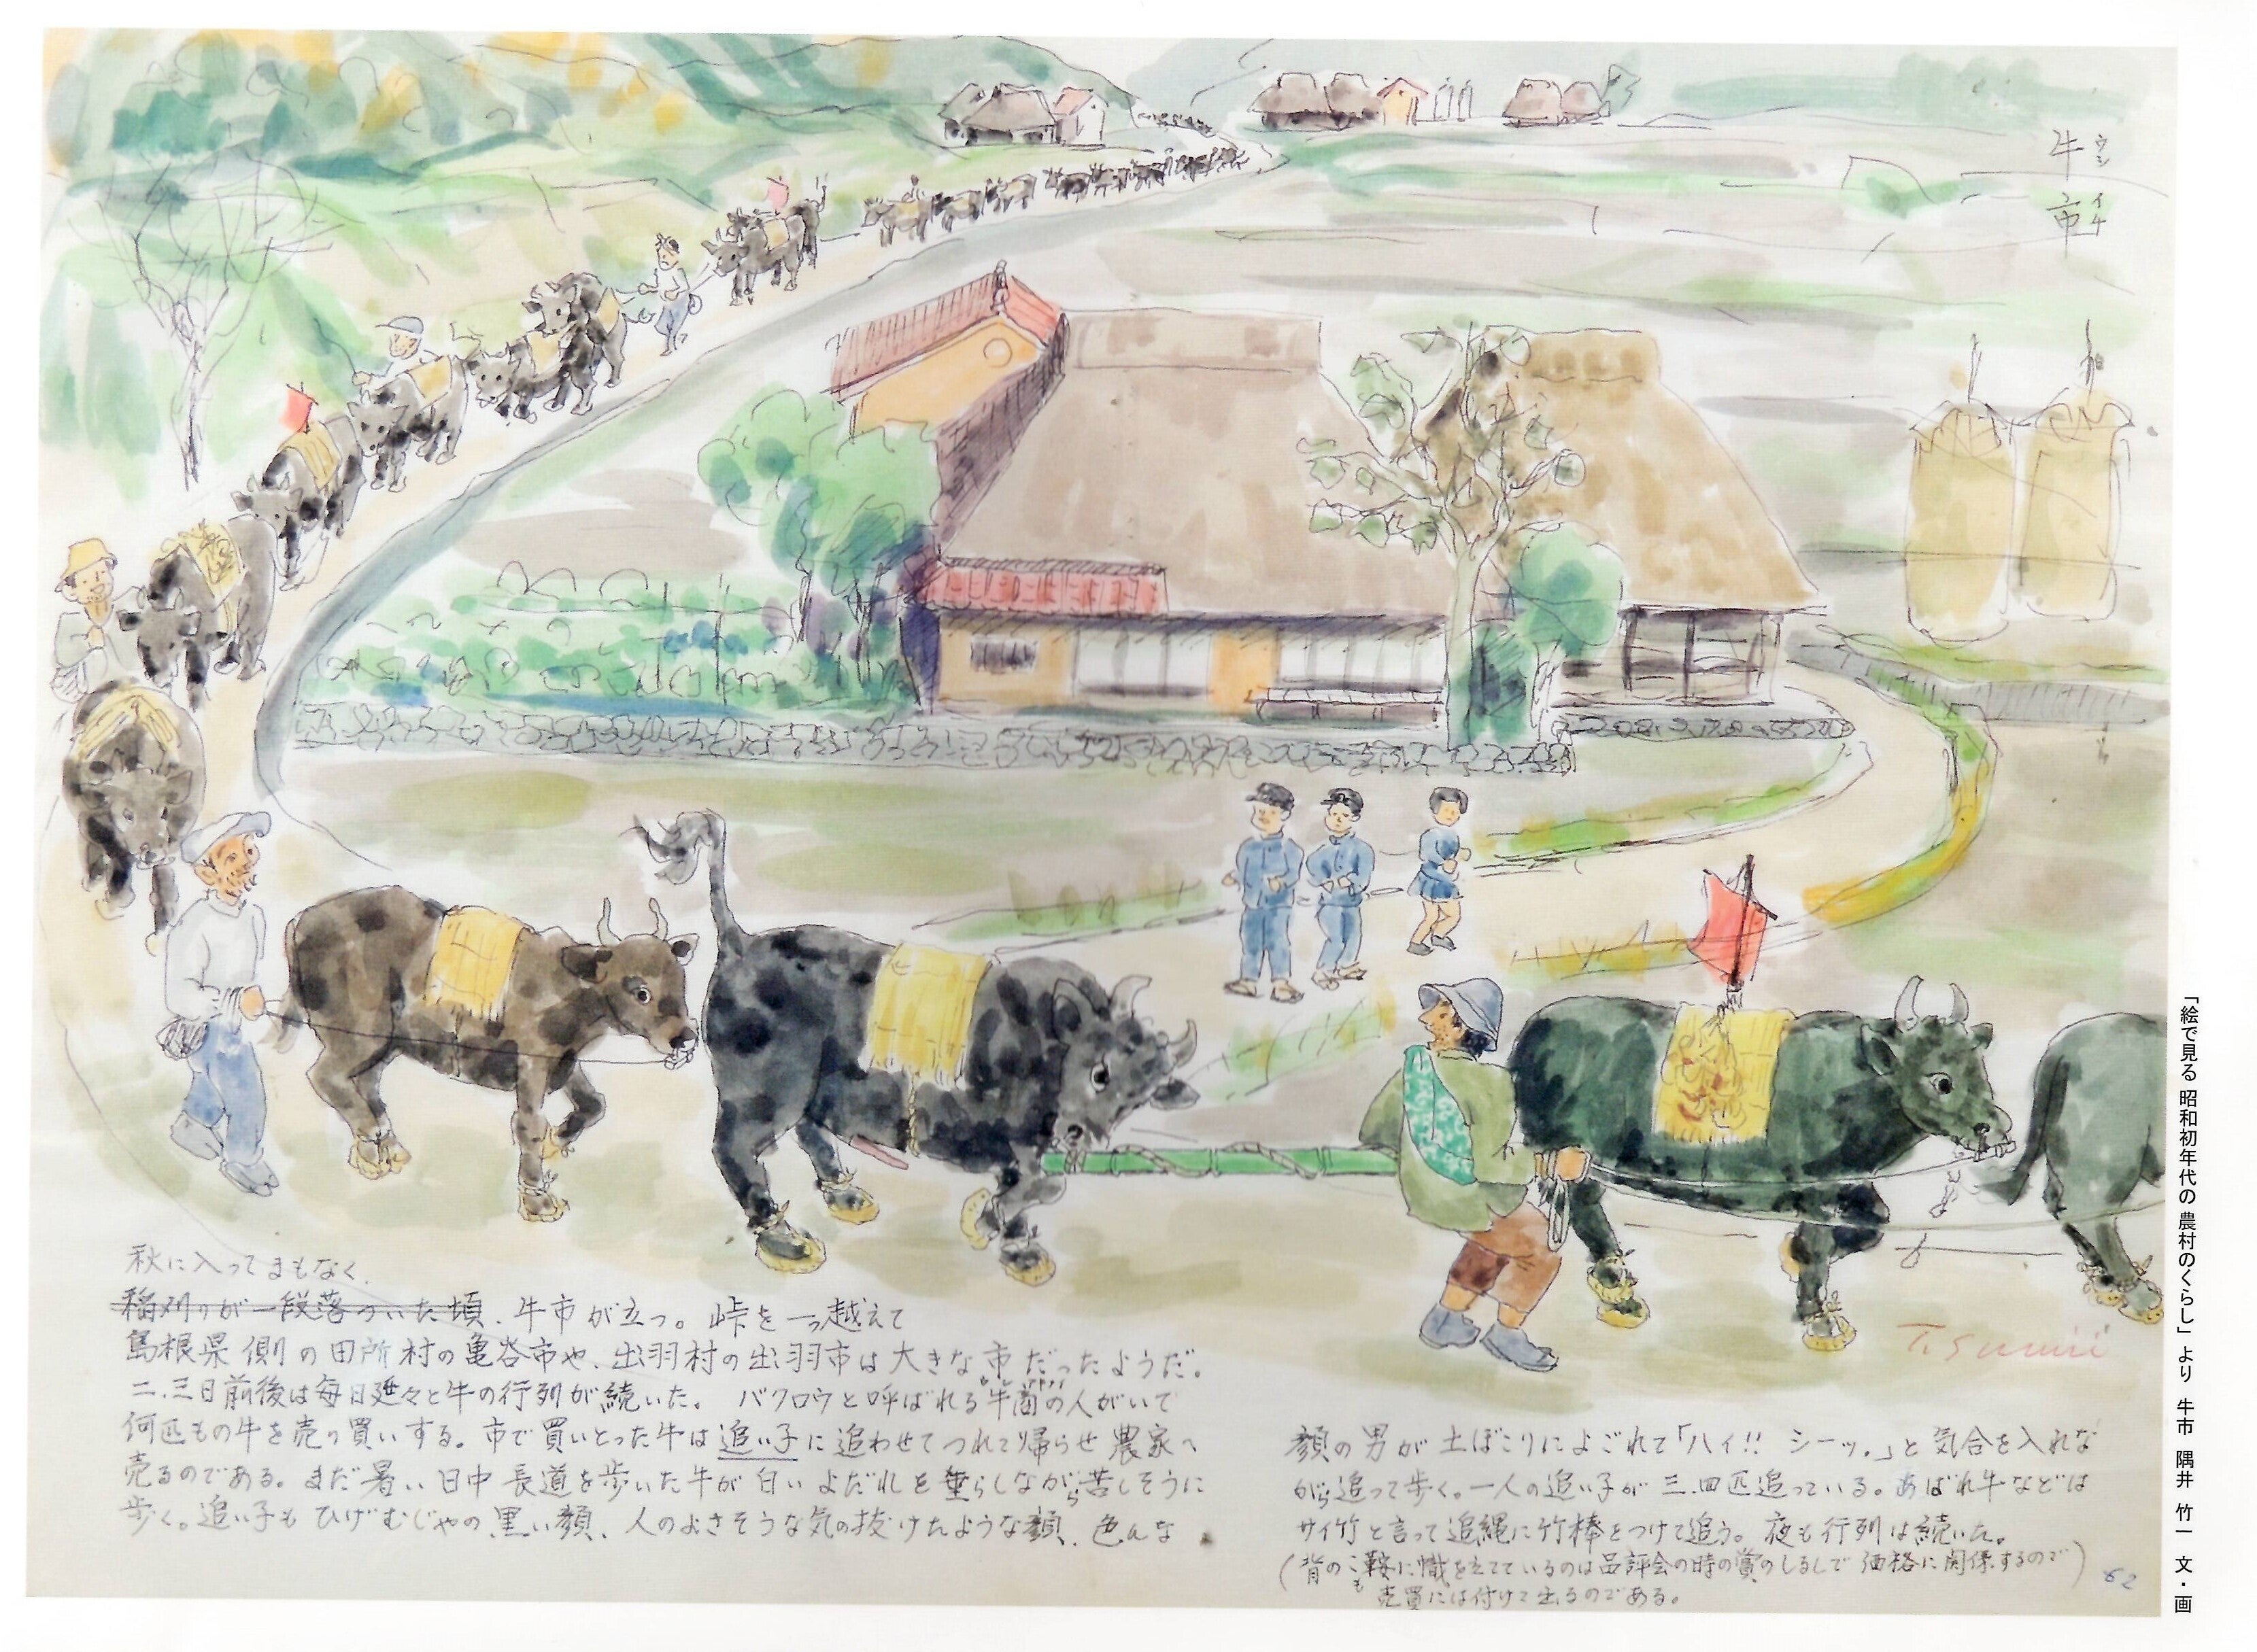 牛市
ウシイチ
秋に入ってまもなく、
稲刈りが一段落ついた頃、牛市が立つ。峠を一つ越えて
島根県側の田所村の亀谷市や、出羽村の出羽市は大きな市だったようだ。
二、三日前後は毎日延々と牛の行列が続いた。バクロウと呼ばれる牛商の人がいで
何匹もの牛を売り買いする。市で買いとった牛は追い子に追わせてつれて帰らせ農家へ
売るのである。まだ暑い日中長道を歩いた牛が白いよだれを垂らしながら苦しそうに
歩く。追い子もひげむじゃの黒い顔、人のよさそうな気の抜けたような顔、色んな
顔の男が土ぼこりによごれて「ハイ!! シーッ。」と気合を入れな
がら追って歩く。一人の追い子が三、四匹追っている。あばれ牛などは
サイ竹と言って追縄に竹棒をつけて追う。夜も行列は続いた。
(背のこも鞍に幟を立てているのは品評会の時の賞のしるしで価格に関係するので
売買には付けて出るのである。)
62
T. Sumii
「絵で見る 昭和初年代の農村のくらし」より 牛市 隅井 竹一 文・画